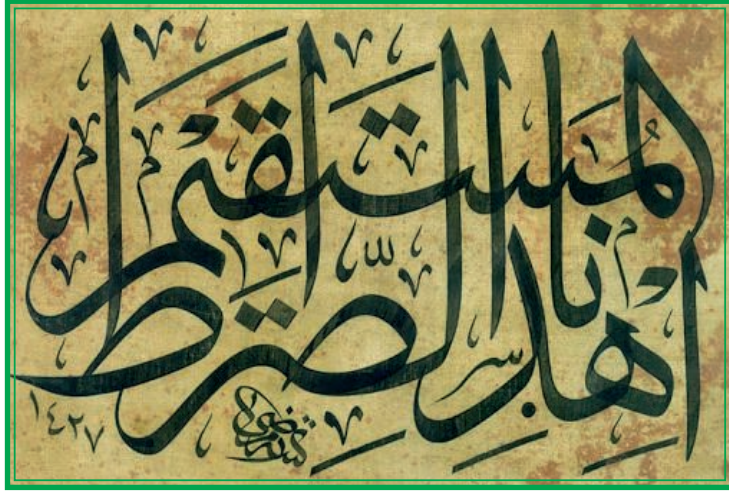 اهدنا الصراط المستقيم
١٤٢٧